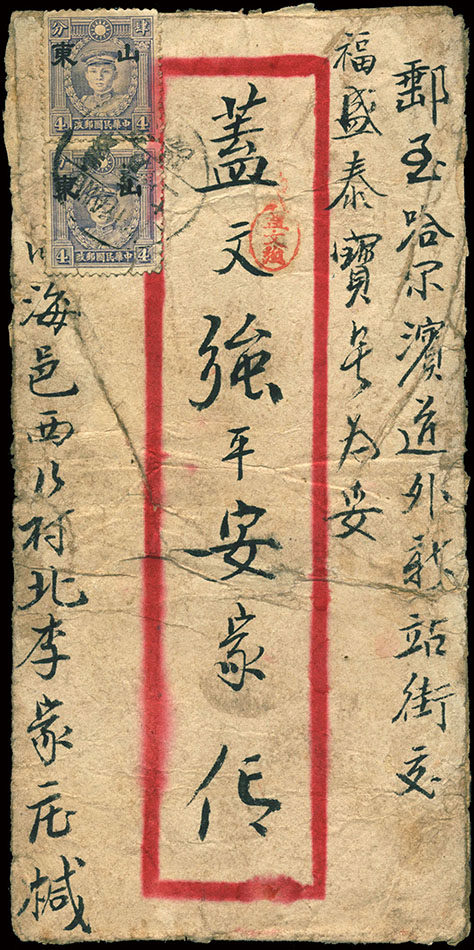 郵至哈尔濱道外新站街交
福盛泰寶号为妥
蓋文強平安家信
海邑西乡村北李家庄椷
分 肆
東 山
4 中華民國郵政 4
東 山
4 中華民國郵政 4